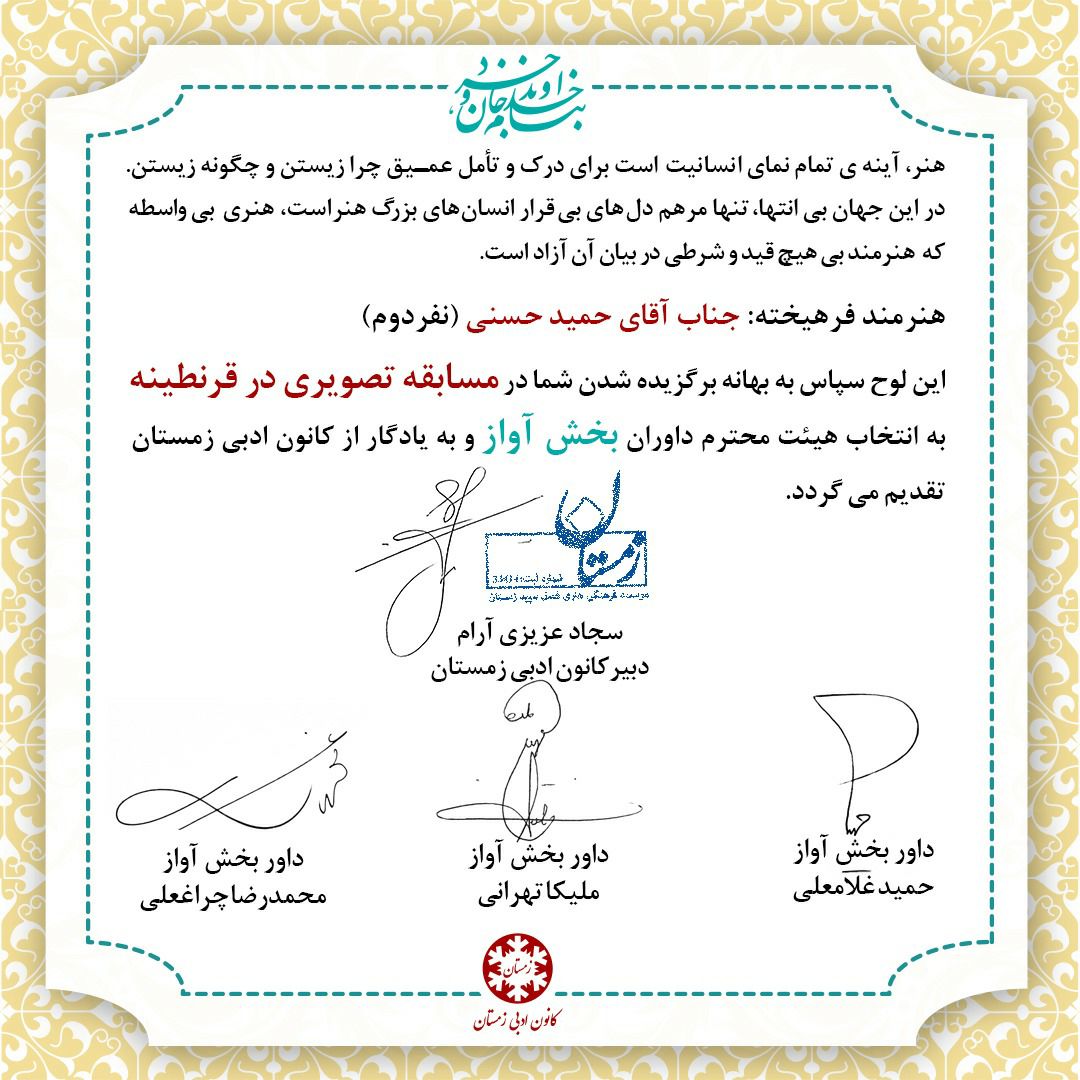 بنام خداوند جان و خرد
هنر، آینه ی تمام نمای انسانیت است برای درک و تأمل عمـیق چرا زیستن و چگونه زیستن.
در این جهان بی انتها، تنها مرهم دل‌های بی قرار انسان‌های بزرگ هنر است، هنری بی واسطه
که هنرمند بی هیچ قید و شرطی در بیان آن آزاد است.
هنرمند فرهیخته: جناب آقای حمید حسنی (نفر دوم)
این لوح سپاس به بهانه برگزیده شدن شما در مسابقه تصویری در قرنطینه
به انتخاب هیئت محترم داوران بخش آواز و به یادگار از کانون ادبی زمستان
تقدیم می گردد.
زمستان
شماره ثبت:
موسسه فرهنگی هنری فصل سپید زمستان
سجاد عزیزی آرام
دبیر کانون ادبی زمستان
داور بخش آواز
حمید غلامعلی
داور بخش آواز
ملیکا تهرانی
داور بخش آواز
محمدرضا چراغعلی
زمستان
کانون ادبی زمستان